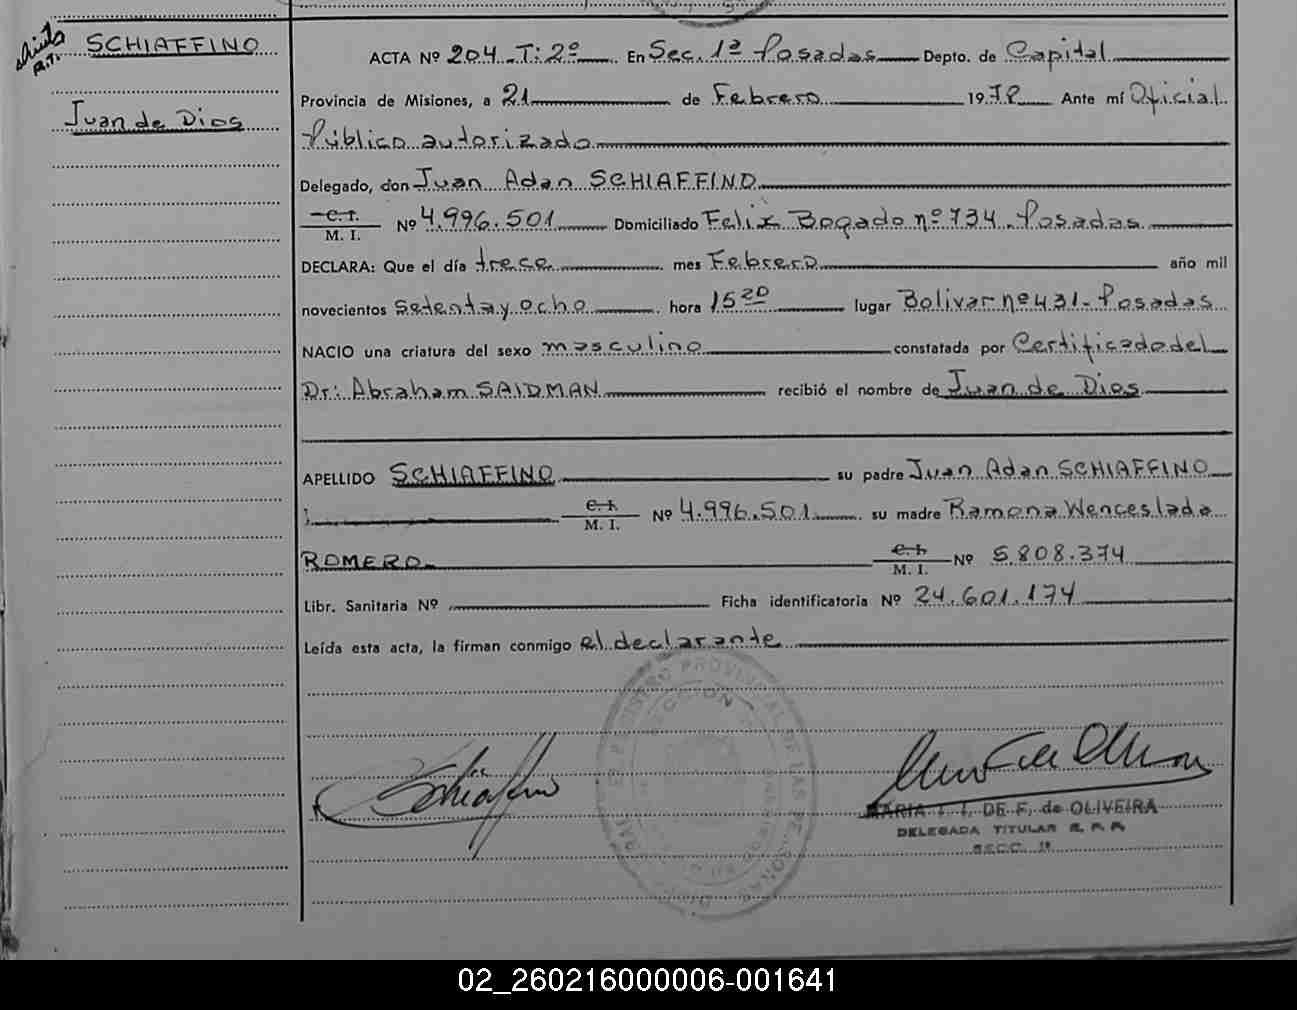 SCHIAFFINO
Juan de Dios
ACTA Nº 204 T: 2º En Sec. 1ª Posadas Depto. de Capital
Provincia de Misiones, a 21 de Febrero 1978 Ante mí Oficial
Público autorizado
Delegado, don Juan Adan SCHIAFFINO
C. I.
M. I. Nº 4.996.501 Domiciliado Felix Bogado nº 734. Posadas
DECLARA: Que el día trece mes Febrero año mil
novecientos setenta y ocho hora 15 20 lugar Bolivar nº 431- Posadas
NACIO una criatura del sexo masculino constatada por Certificado del
Dr: Abraham SAIDMAN recibió el nombre de Juan de Dios
APELLIDO SCHIAFFINO su padre Juan Adan SCHIAFFINO
C. I.
M. I. Nº 4.996.501 su madre Ramona Wenceslada
ROMERO C. I.
M. I. Nº 5.808.374
Libr. Sanitaria Nº Ficha identificatoria Nº 24.601.174
Leída esta acta, la firman conmigo el declarante
Schiaffino
MARIA DE F. de OLIVEIRA
DELEGADA TITULAR
SECC. 1ª
REGISTRO PROVINCIAL DE LAS PERSONAS
02_260216000006-001641